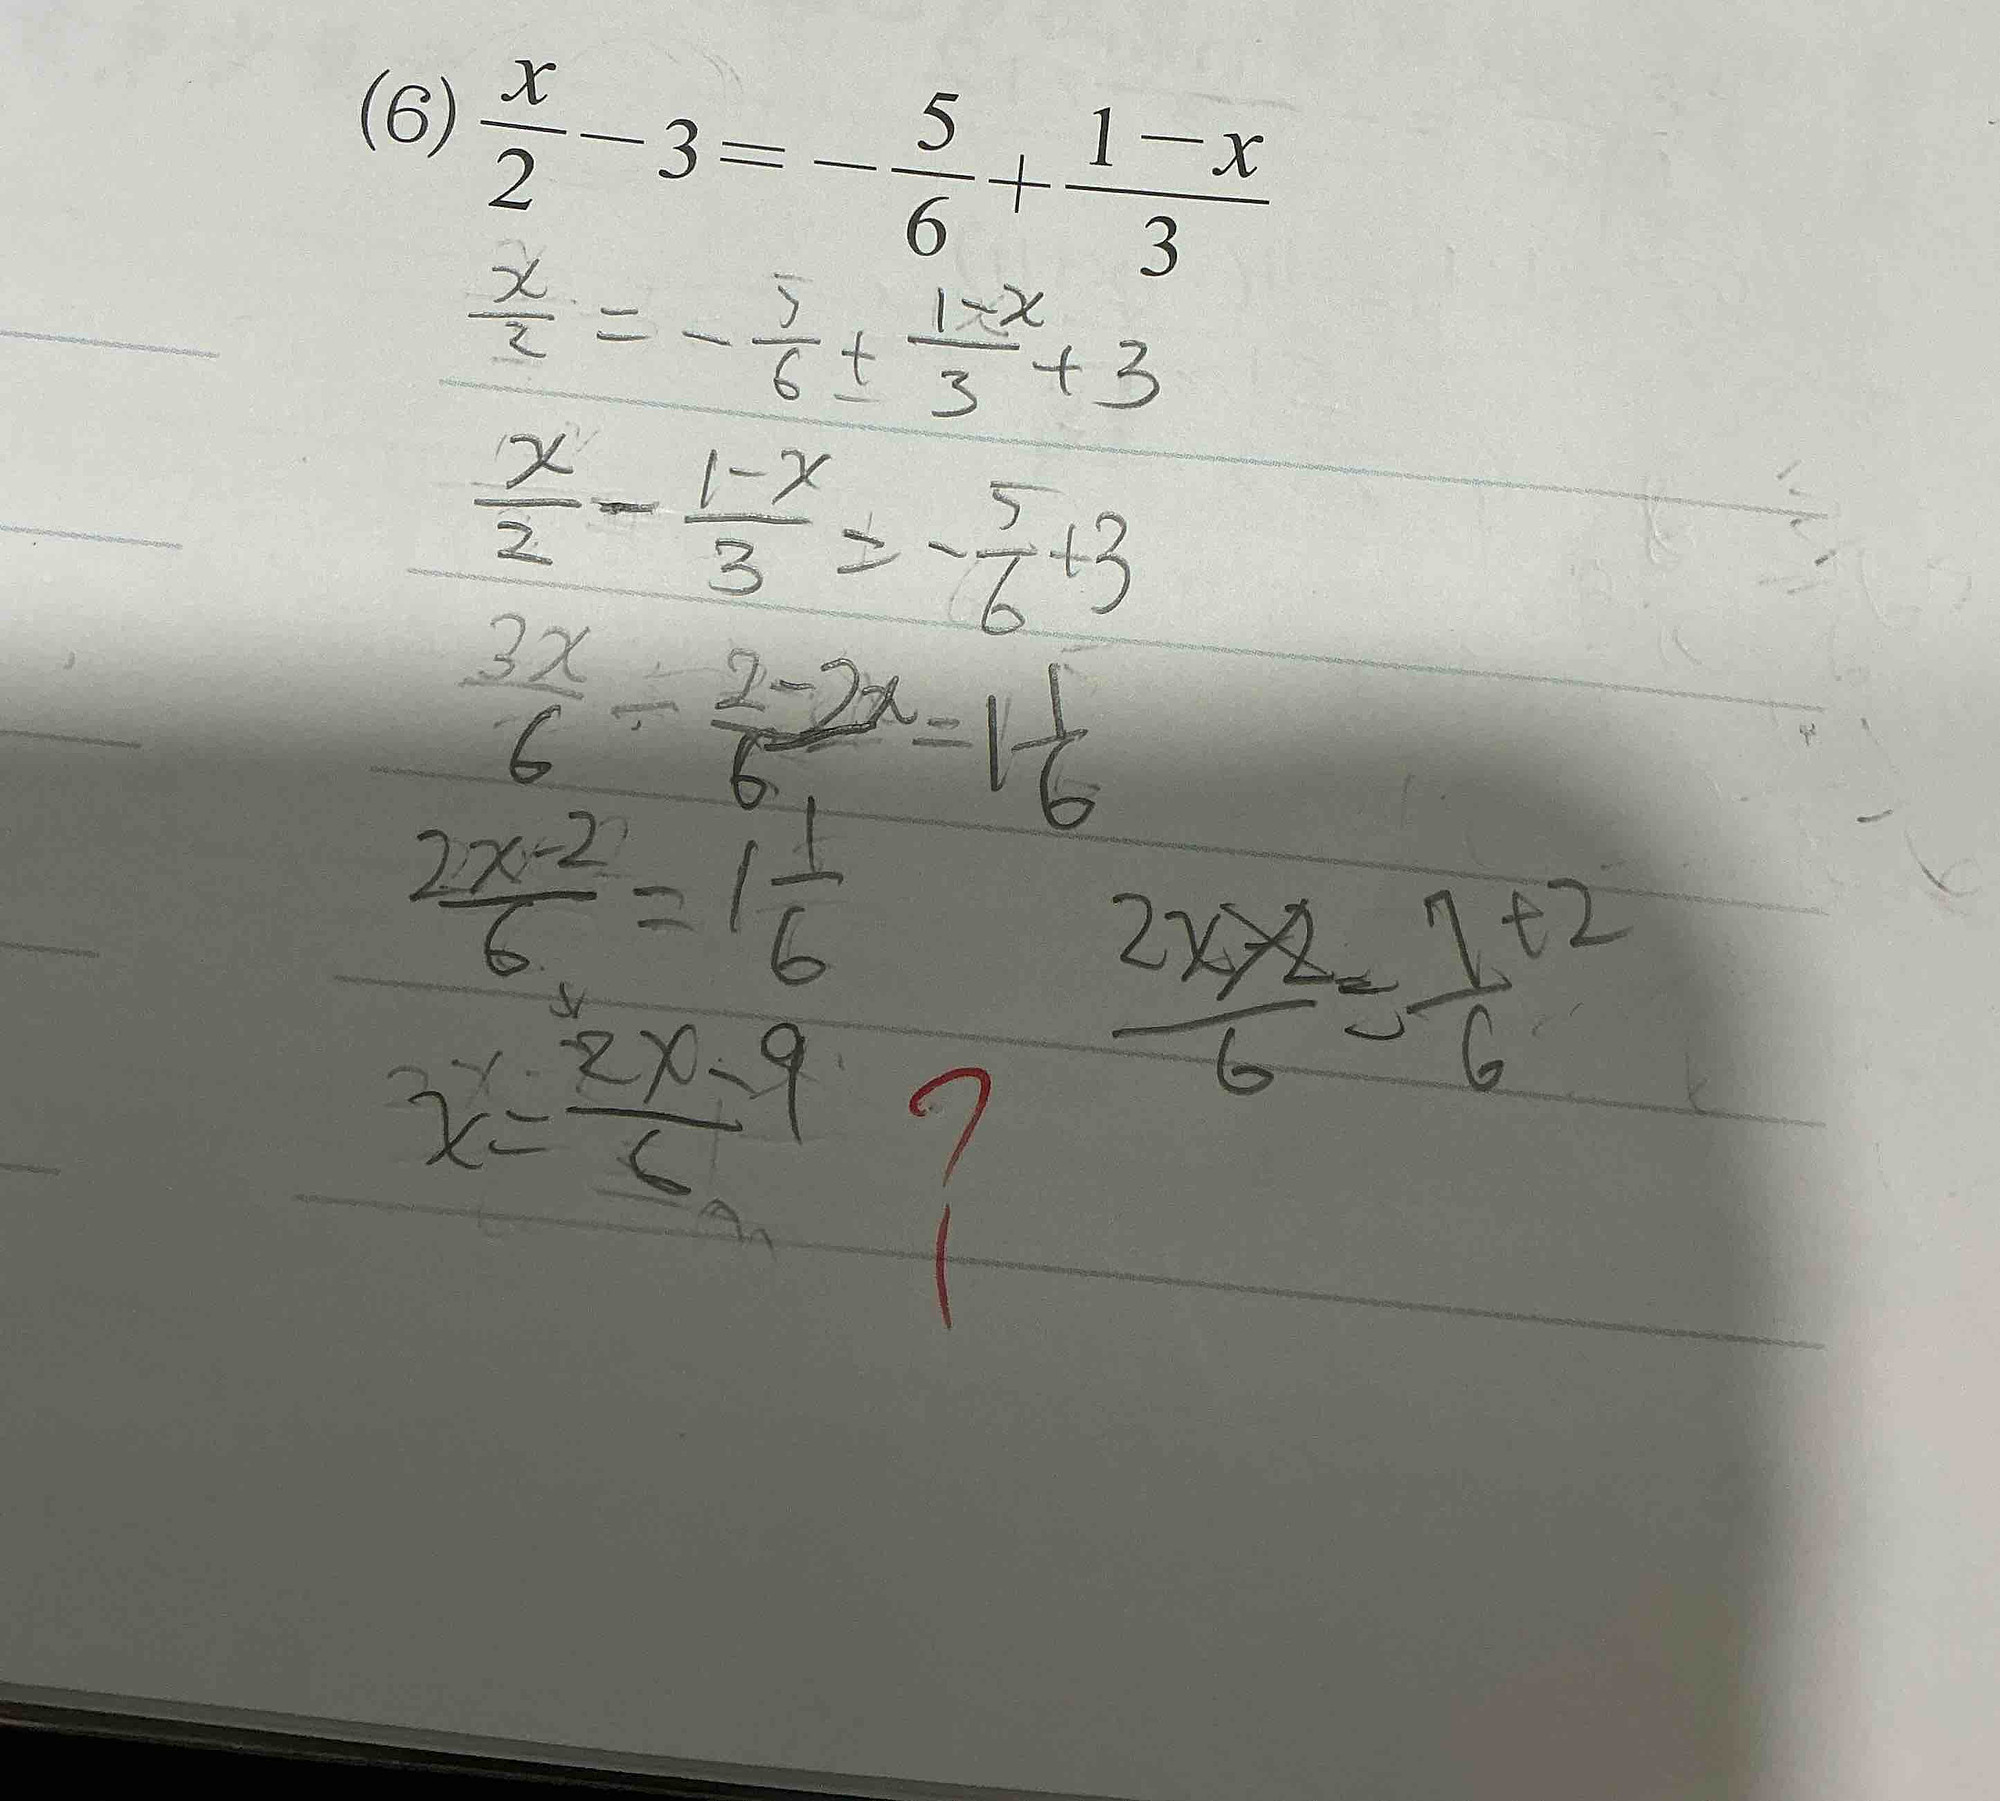 (6) x/2 - 3 = - 5/6 + (1-x)/3
x/2 = - 5/6 + (1-x)/3 + 3
x/2 - (1-x)/3 = - 5/6 + 3
3x/6 - (2-2x)/6 = 1 1/6
(2x-2)/6 = 1 1/6
(2x-2)/6 = 7+2/6
x = (2x-9)/6
?